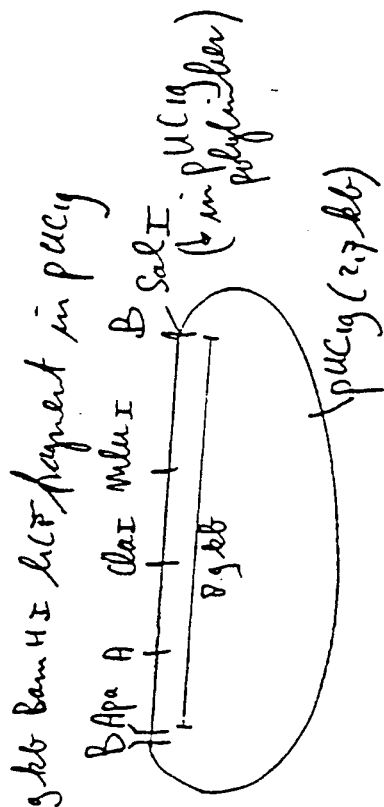 9 kb Bam HI fragment in pUC19
B Apa A ClaI MluI B
SalI
(in pUC19
polylinker)
8.9 kb
pUC19 (2,7 kb)